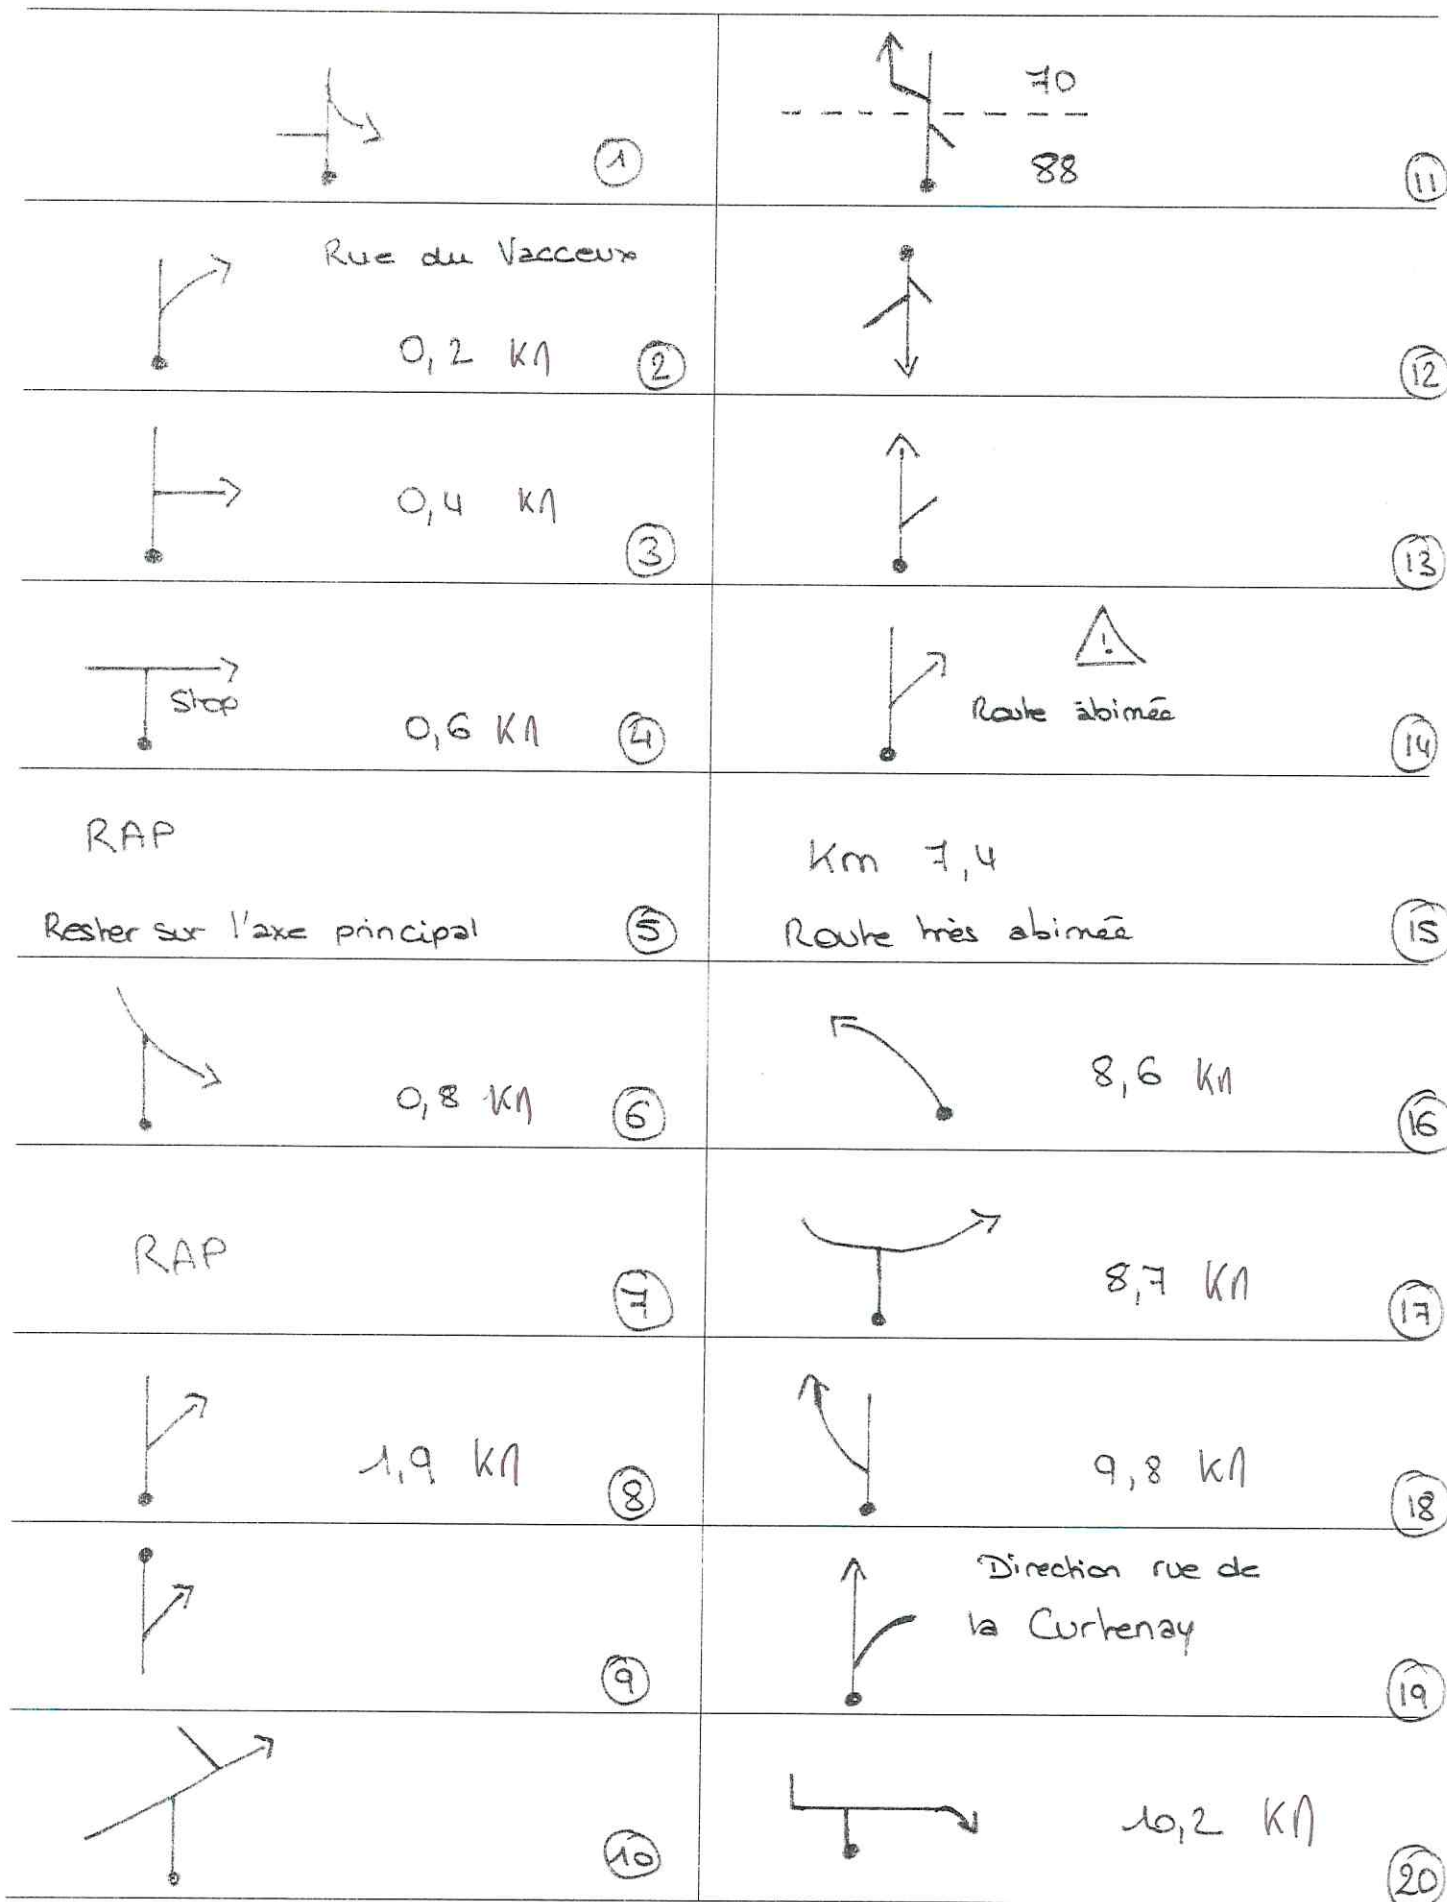 1
Rue du Vacceux
0,2 KM
2
0,4 KM
3
Stop
0,6 KM
4
RAP
Rester sur l'axe principal
5
0,8 KM
6
RAP
7
1,9 KM
8
9
10
70
88
11
12
13
!
Route abimée
14
Km 7,4
Route très abimée
15
8,6 KM
16
8,7 KM
17
9,8 KM
18
Direction rue de
la Curtenay
19
10,2 KM
20